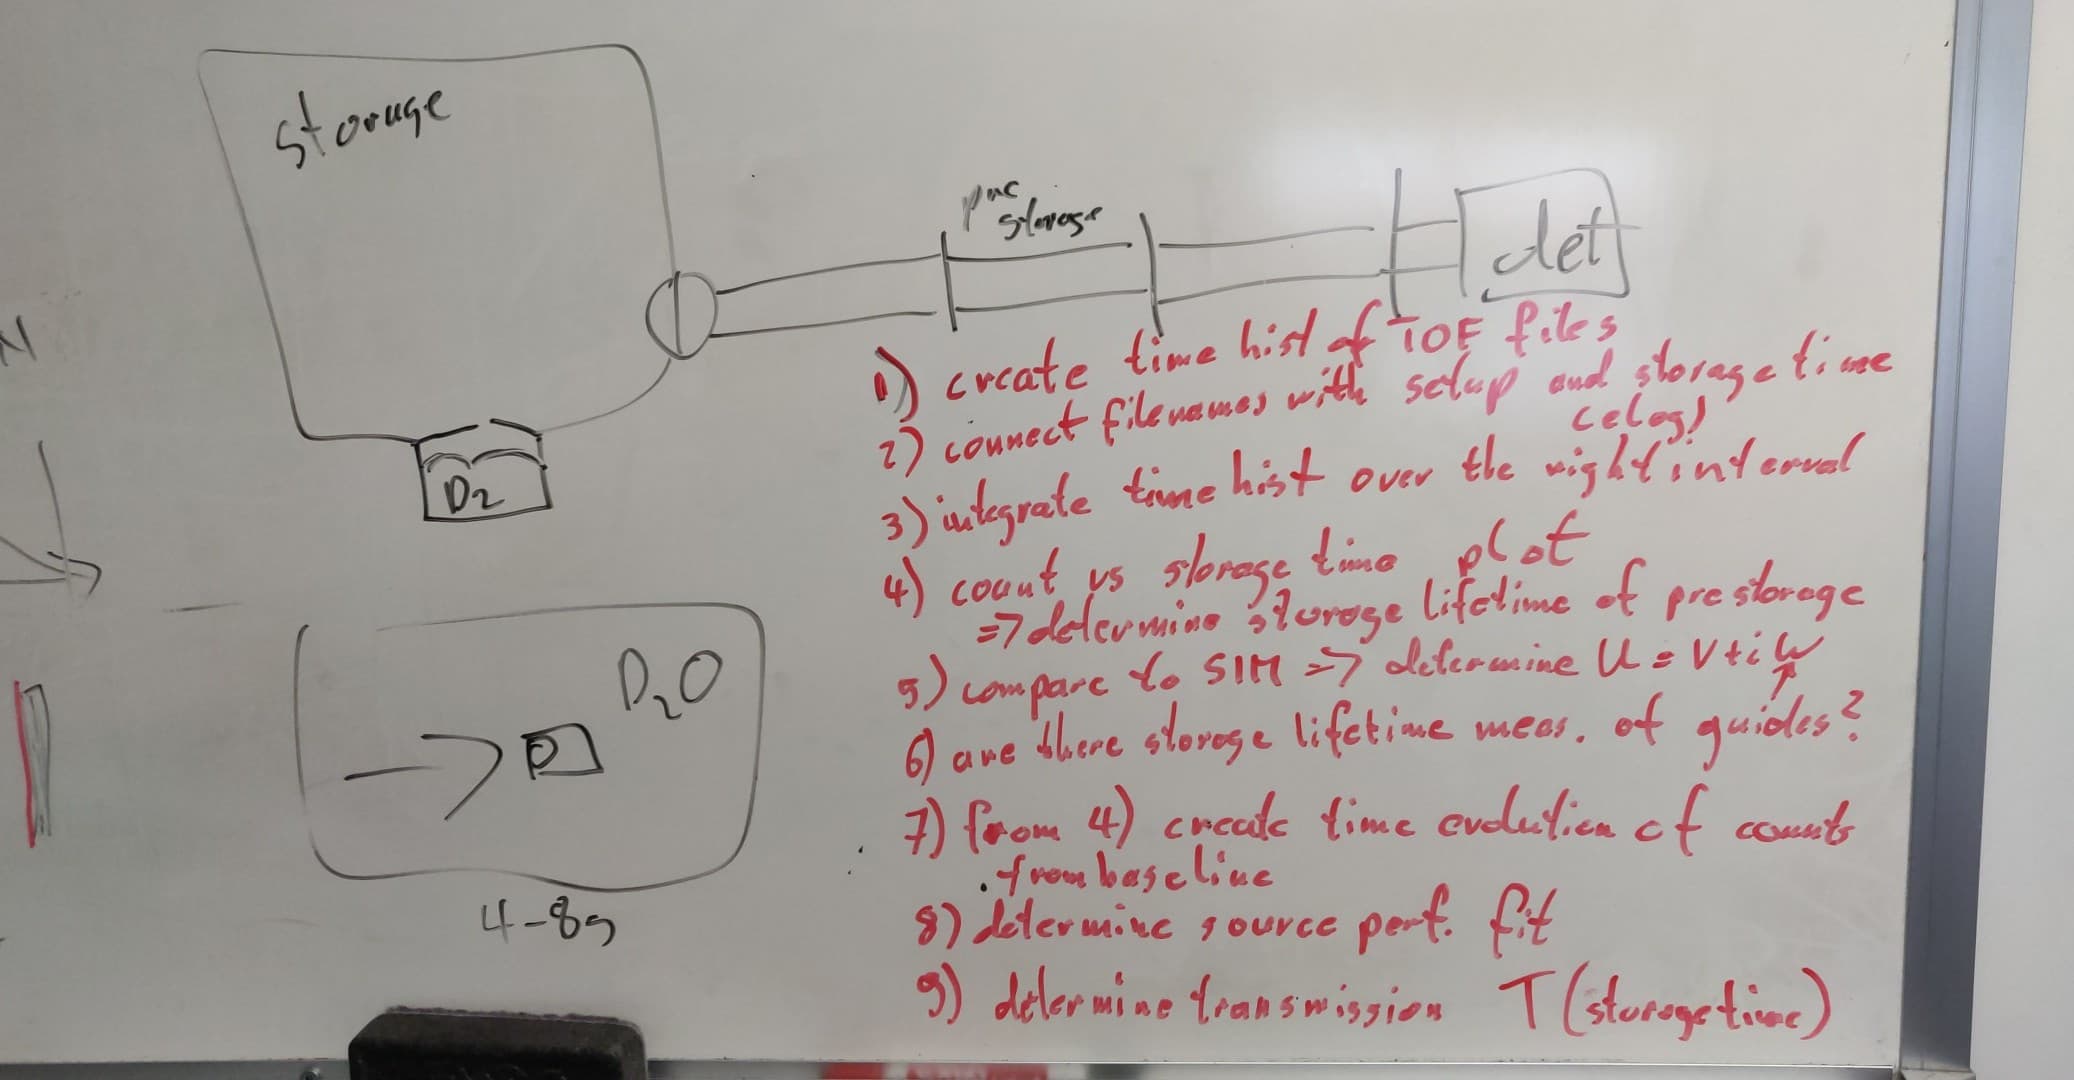 Storage
pre
storage
det
D2
1) create time hist of TOF files
2) connect filenames with setup and storage time
(elog)
3) integrate time hist over the right interval
4) count vs storage time plot
=> determine storage lifetime of prestorage
5) compare to SIM => determine U = V + i W
6) are there storage lifetime meas. of guides?
7) from 4) create time evolution of counts
from baseline
8) determine source perf. fit
9) determine transmission T (storage time)
D₂O
4-8s